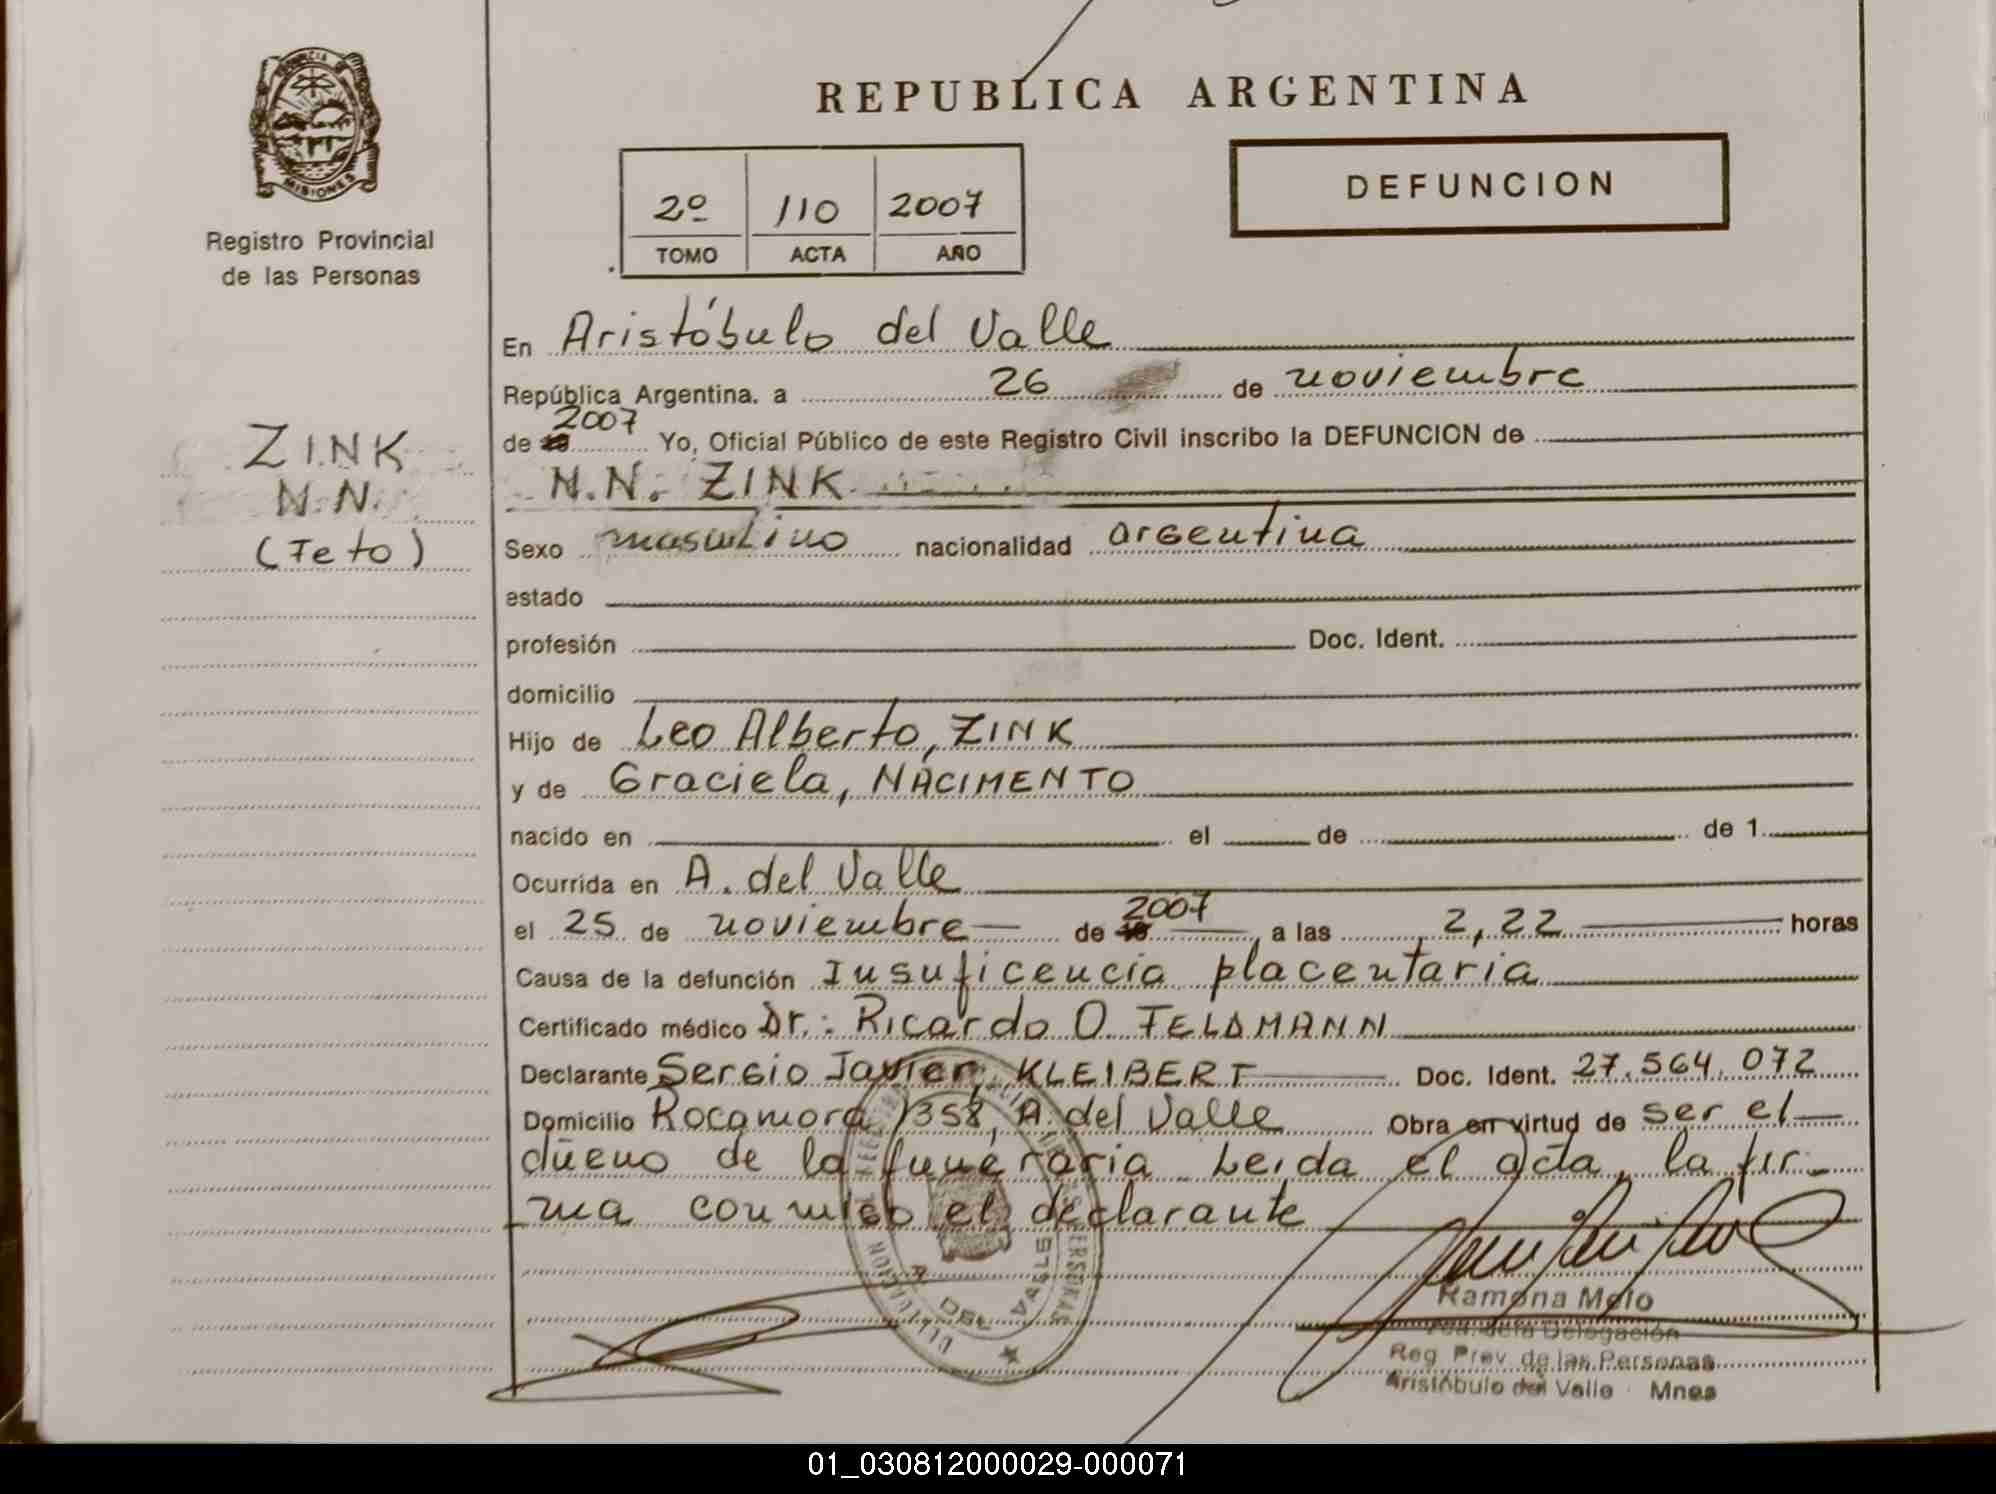 PROVINCIA DE
MISIONES
Registro Provincial
de las Personas
ZINK
N.N.
(Feto)
REPUBLICA ARGENTINA
2º 110 2007
TOMO ACTA AÑO
DEFUNCION
En Aristóbulo del Valle
República Argentina. a 26 de noviembre
2007
de 19 Yo, Oficial Público de este Registro Civil inscribo la DEFUNCION de
N.N. ZINK
Sexo masculino nacionalidad argentina
estado
profesión Doc. Ident.
domicilio
Hijo de Leo Alberto, ZINK
y de Graciela, NACIMENTO
nacido en el de de 1
Ocurrida en A. del Valle
2007
el 25 de noviembre de 19 a las 2,22 horas
Causa de la defunción Insuficencia placentaria
Certificado médico Dr.: Ricardo O. FELDMANN
Declarante Sergio Javier, KLEIBERT Doc. Ident. 27.564.072
Domicilio Rocamora 1358, A. del Valle Obra en virtud de ser el
dueño de la funeraria Leida el acta, la fir-
ma conmigo el declarante
A. DEL VALLE
Ramona Melo
Delegación
Reg. Prov. de las Personas
Aristóbulo del Valle Mnes
01_030812000029-000071